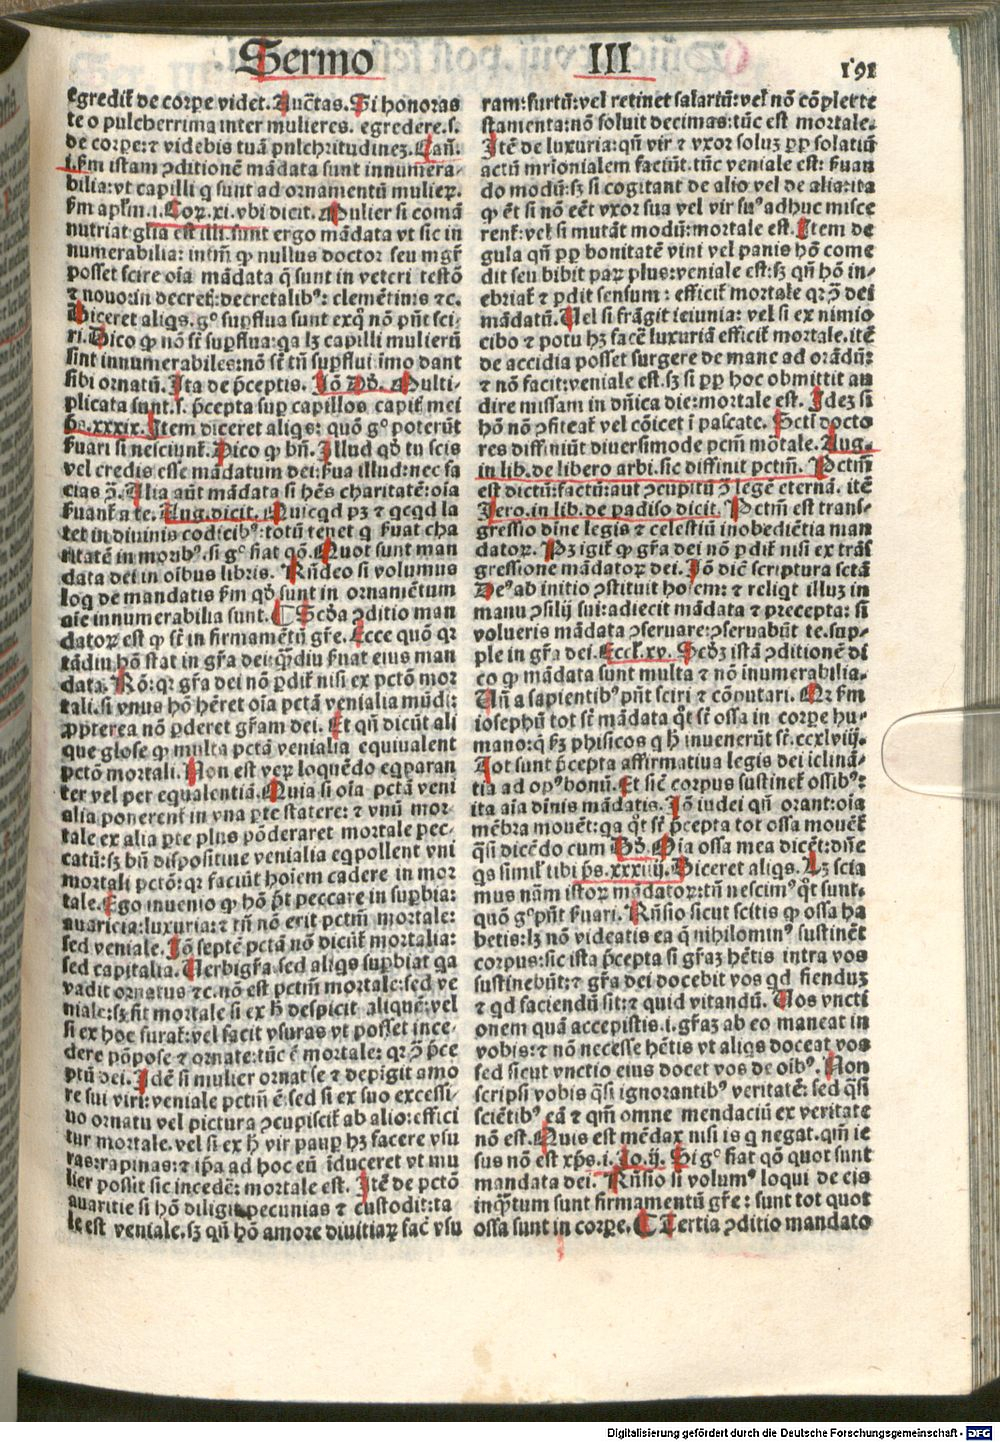 Sermo III 191
egredit̃ de corꝑe videt. Auctas. Si honoras
te o pulcherrima inter mulieres. egredere.s.
de corꝑe: ⁊ videbis tuā pulchritudineꝫ. Cañ.
i. Fm istam ꝯditionē mādata sunt innumera-
bilia: vt capilli q sunt ad ornamentū mulieꝝ.
fm apl̃m. i. Coꝝ. xi. vbi dicit. Mulier si comā
nutriat gl̃ia est illi. sunt ergo mādata vt sic in
numerabilia: intm̃ ꝙ nullus doctor seu mgr̃
posset scire oĩa mādata q̃ sunt in veteri testō
⁊ nouo: in decret̃: decretalibꝰ: clemētinis ⁊c.
Diceret aliqs. gͦ suꝑflua sunt exq̊ nō pn̄t sci-
ri. Dico ꝙ nō st̃ suꝑflua: qa lꝫ capilli mulierū
sint innumerabiles: nō st̃ tn̄ suꝑflui īmo dant
sibi ornatū. Ita de p̄ceptis. Iō Dd̃. Multi-
plicata sunt. s. p̄cepta suꝑ capillos capit̃ mei
p̄s. xxxix. Item diceret aliqs: quō gͦ poterūt
ẜuari si nesciunt̃. Dico ꝙ bn̄. Illud qd̃ tu scis
vel credis esse mādatum dei: ẜua illud: nec fa
cias ꝯ̄. Alia aūt mādata si hēs charitatē: oĩa
ẜuant̃ a te. Aug. dicit. Quicqd pꝫ ⁊ qcqd la
tet in diuinis codicibꝰ: totū tenet q ẜuat cha
ritatē in moribꝰ. si gͦ fiat qō. Quot sunt man
data dei in oībus libris. Rn̄deo si volumus
loq de mandatis fm qd̃ sunt in ornamētum
aīe innumerabilia sunt. ¶ Scd̃a ꝯditio man
datoꝝ est ꝙ st̃ in firmamētū gr̃e. Ecce quō qꝛ
tādiu hō stat in gr̃a dei: q̄ꝫdiu ẜuat eius man
data. Rō: qꝛ gr̃a dei nō ꝑdit̃ nisi ex pctō mor
tali. si vnus hō hēret oĩa pctā venialia mūdi:
ꝓpterea nō ꝑderet gr̃am dei. Et qn̄ dicūt ali
que glose ꝙ multa pctā venialia equiualent
pctō mortali. Non est veꝝ loquēdo eqꝑaran
ter vel per equalentiā. Quia si oĩa pctā veni
alia ponerent̃ in vna ꝑte statere: ⁊ vnū mor-
tale ex alia ꝑte plus pōderaret mortale pec-
catū: sꝫ bn̄ dispositiue venialia eqpollent vni
mortali pctō: qꝛ faciūt hoīem cadere in mor
tale. Ego inuenio ꝙ hō p̄t peccare in suꝑbia:
auaricia: luxuria: ⁊ tn̄ nō erit pctm̃ mortale:
sed veniale. Iō septē pctā nō dicūt̃ mortalia:
sed capitalia. Verbigr̃a sed aliqs suꝑbiat qa
vadit ornatus ⁊c. nō est pctm̃ mortale: sed ve
niale: sꝫ fit mortale si ex h̄ despicit aliquē: vel
si ex hoc furat̃: vel facit vsuras vt posset ince-
dere pōpose ⁊ ornate: tūc ē mortale: qꝛ ꝯ̄ p̄ce
ptū dei. Idē si mulier ornat se ⁊ depīgit amo
re sui viri: veniale pctm̃ ē: sed si ex suo excessi-
uo ornatu vel pictura ꝯcupiscit̃ ab alio: effici
tur mortale. vel si ex h̄ vir pauꝑ hꝫ facere vsu
ras: rapinas: ⁊ ip̄a ad hoc eū īduceret vt mu
lier possit sic incedē: mortale est. Itē de pctō
auaritie si hō diligit pecunias ⁊ custodit: ta
le est veniale. sꝫ qn̄ hō amore diuitiaꝝ fac̃ vsu
ram: furtū: vel retinet salariū: vel nō cōplet te
stamenta: nō soluit decimas: tūc est mortale.
Itē de luxuria: qn̄ vir ⁊ vxor soluꝫ ꝓp solatiū
actū mr̃ionialem faciūt. tūc veniale est: ẜuan
do modū: sꝫ si cogitant de alio vel de alia: ita
ꝙ ēt si nō eēt vxor sua vel vir suꝰ adhuc misce
rent̃: vel si mutāt modū: mortale est. Item de
gula qn̄ ꝓp bonitatē vini vel panis hō come
dit seu bibit paꝝ plus: veniale est: sꝫ qn̄ hō in-
ebriat̃ ⁊ ꝑdit sensum: efficit̃ mortale qꝛ ꝯ̄ dei
mādatū. Vel si frāgit ieiunia: vel si ex nimio
cibo ⁊ potu hꝫ facē luxuriā efficit̃ mortale. itē
de accidia posset surgere de mane ad orādū:
⁊ nō facit: veniale est. sꝫ si ꝓp hoc obmittit au
dire missam in dn̄ica die: mortale est. Ideꝫ si
hō nō ꝯfiteat̃ vel cōicet ī pascate. Sctī docto
res diffiniūt diuersimode pctm̃ mōtale. Aug-
in lib. de libero arbi. sic diffinit pctm̃. Pctm̃
est dictū: factū: aut ꝯcupitū ꝯ̄ legē eternā. itē
Iero. in lib. de padiso dicit. Pctm̃ est trans-
gressio diuīe legis ⁊ celestiū inobediētia man
datoꝝ. Pꝫ igit̃ ꝙ gr̃a dei nō ꝑdit̃ nisi ex trās
gressione mādatoꝝ dei. Iō dic̃ scriptura sctā
Deꝰ ab initio ꝯstituit hoīem: ⁊ reliqt illuꝫ in
manu ꝯsilij sui: adiecit mādata ⁊ precepta: si
volueris mādata ꝯseruare: ꝯseruabūt te. sup-
ple in gr̃a dei. Eccl̃. xv. Scd̃ꝫ istā ꝯditionē di
co ꝙ mādata sunt multa ⁊ nō inumerabilia.
Vn̄ a sapientibꝰ pn̄t sciri ⁊ cōputari. Qꝛ fm
iosephū tot st̃ mādata q̊t st̃ ossa in corꝑe hu-
mano: q̄ ẜꝫ phisicos q h̄ inuenerūt st̃. ccxlviij.
Tot sunt p̄cepta affirmatiua legis dei iclinā-
tia ad opꝰ bonū. Et sic̃ corpus sustinet̃ ossibꝰ:
ita aīa diuīs mādatis. Iō iudei qn̄ orant: oĩa
mēbra mouēt: qa q̊t st̃ p̄cepta tot ossa mouēt̃
q̄si dicēdo cum Dd̃. Oĩa ossa mea dicēt: dn̄e
qs simil̃ tibi p̄s. xxxiiij. Diceret aliqs. Lꝫ scia
mus nām istoꝝ mādatoꝝ: tn̄ nescimꝰ q̊t sunt-
quō gͦ pn̄t ẜuari. Rn̄sio sicut scitis ꝙ ossa ha
betis: lꝫ nō videatis ea q̄ nihilominꝰ sustinēt
corpus: sic ista p̄cepta si gr̃aꝫ hētis intra vos
sustinebūt: ⁊ gr̃a dei docebit vos qd fienduꝫ
⁊ qd faciendū sit: ⁊ quid vitandū. Vos vncti
onem quā accepistis. i. gr̃aꝫ ab eo maneat in
vobis: ⁊ nō necesse hētis vt aliqs doceat vos
sed sicut vnctio eius docet vos de oībꝰ. Non
scripsi vobis q̄si ignorantibꝰ veritatē: sed q̄si
sciētibꝰ eā ⁊ qm̄ omne mendaciū ex veritate
nō est. Quis est mēdax nisi is q negat. qm̄ ie
sus nō est xp̄s. i. Io. ij. Si gͦ fiat qō quot sunt
mandata dei. Rn̄sio si volumꝰ loqui de eis
inq̄ꝫtum sunt firmamentū gr̃e: sunt tot quot
ossa sunt in corꝑe. ¶ Tertia ꝯditio mandato
Digitalisierung gefördert durch die Deutsche Forschungsgemeinschaft - DFG